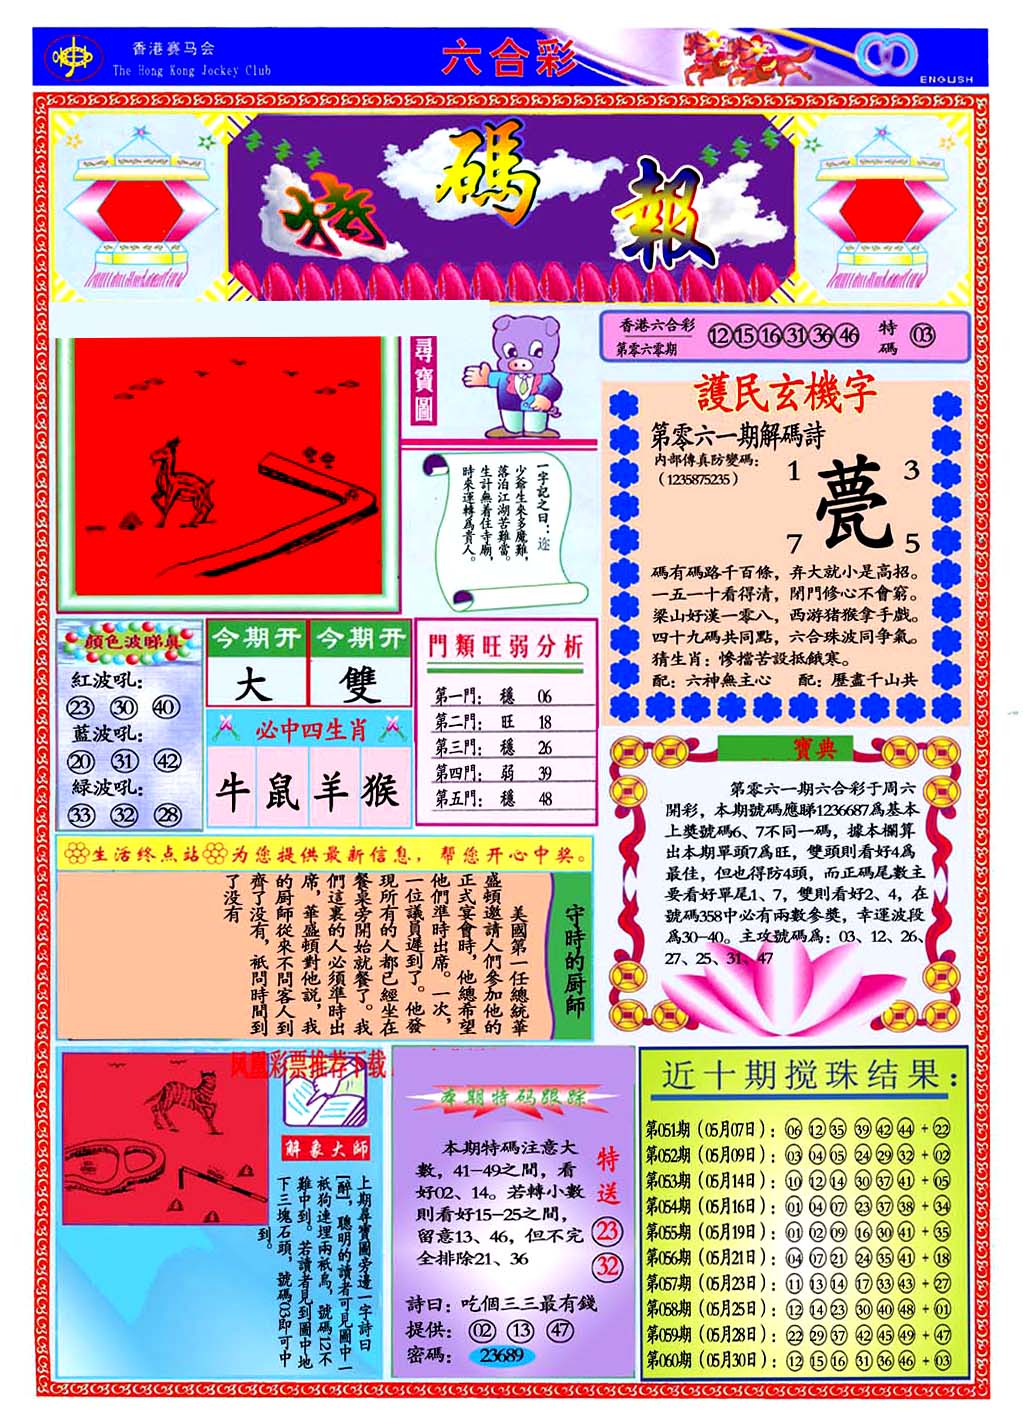 香港赛马会
The Hong Kong Jockey Club
六合彩
ENGLISH
特碼報
尋寶圖
香港六合彩
第零六零期
12 15 16 31 36 46
特碼
03
一字記之曰：迩
少爺生來多魔難，
落泊江湖苦難當。
生計無着住寺廟，
時來運轉爲貴人。
護民玄機字
第零六一期解碼詩
内部傳真防變碼：
（1235875235）
1
3
甍
7
5
碼有碼路千百條，弃大就小是高招。
一五一十看得清，閉門修心不會窮。
梁山好漢一零八，西游猪猴拿手戲。
四十九碼共同點，六合珠波同争氣。
猜生肖：慘擋苦設抵餓寒。
配：六神無主心 配：歷盡千山共
顔色波睇真
紅波吼：
23 30 40
藍波吼：
20 31 42
緑波吼：
33 32 28
今期开 今期开
大 雙
必中四生肖
牛 鼠 羊 猴
門類旺弱分析
第一門： 穩 06
第二門： 旺 18
第三門： 穩 26
第四門： 弱 39
第五門： 穩 48
寶典
第零六一期六合彩于周六
開彩，本期號碼應睇1236687爲基本
上獎號碼6、7不同一碼，據本欄算
出本期單頭7爲旺，雙頭則看好4爲
最佳，但也得防4頭，而正碼尾數主
要看好單尾1、7，雙則看好2、4，在
號碼358中必有兩數參獎，幸運波段
爲30-40。主攻號碼爲：03、12、26、
27、25、31、47
生活终点站 为您提供最新信息，帮您开心中奖。
守時的厨師
美國第一任總統華
盛頓邀請人們參加他的
正式宴會時，他總希望
他們準時出席。一次，
一位議員遲到了。他發
現所有的人都已經坐在
餐桌旁開始就餐了。我
們這裏的人必須準時出
席，華盛頓對他説，我
的厨師從來不問客人到
齊了没有，衹問時間到
了没有
凤凰彩票推荐下载
解象大師
上期尋寶圖旁邊一字詩曰
[醉]，聰明的讀者可見圖中一
衹狗連埋兩衹鳥，號碼12不
難中到。若讀者見到圖中地
下三塊石頭，號碼03即可中
到。
本期特码跟踪
本期特碼注意大
數，41-49之間，看
好02、14。若轉小數
則看好15-25之間，
留意13、46，但不完
全排除21、36
特送
23
32
詩曰：吃個三三最有錢
提供： 02 13 47
密碼： 23689
近十期搅珠结果：
第051期（05月07日）： 06 12 35 39 42 44 + 22
第052期（05月09日）： 03 04 05 24 29 32 + 02
第053期（05月14日）： 10 12 14 30 37 41 + 05
第054期（05月16日）： 01 04 07 23 37 38 + 34
第055期（05月19日）： 01 02 09 16 30 41 + 35
第056期（05月21日）： 04 07 21 24 35 41 + 18
第057期（05月23日）： 11 13 14 17 33 43 + 27
第058期（05月25日）： 12 14 23 30 40 48 + 01
第059期（05月28日）： 22 29 37 42 45 49 + 47
第060期（05月30日）： 12 15 16 31 36 46 + 03